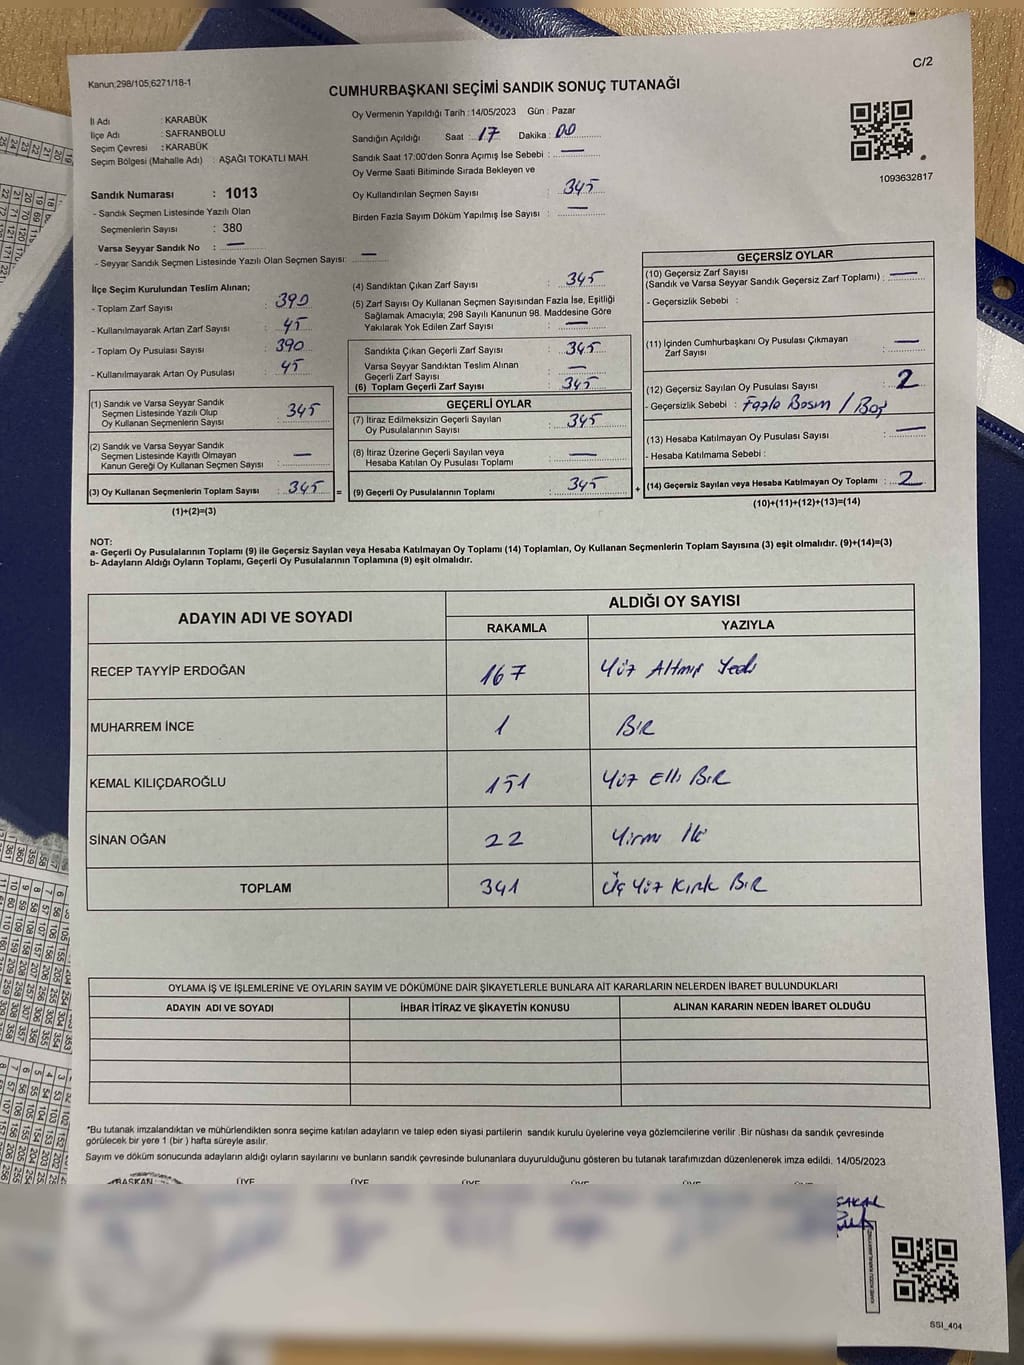 C/2
Kanun;298/105,6271/18-1
CUMHURBAŞKANI SEÇİMİ SANDIK SONUÇ TUTANAĞI
İl Adı : KARABÜK
İlçe Adı : SAFRANBOLU
Seçim Çevresi : KARABÜK
Seçim Bölgesi (Mahalle Adı) : AŞAĞI TOKATLI MAH.
Oy Vermenin Yapıldığı Tarih : 14/05/2023 Gün : Pazar
Sandığın Açıldığı Saat : 17 Dakika : 00
Sandık Saat 17:00'den Sonra Açımış İse Sebebi : —
Oy Verme Saati Bitiminde Sırada Bekleyen ve
Oy Kullandırılan Seçmen Sayısı : 345
Birden Fazla Sayım Döküm Yapılmış İse Sayısı : —
1093632817
Sandık Numarası : 1013
- Sandık Seçmen Listesinde Yazılı Olan
Seçmenlerin Sayısı : 380
Varsa Seyyar Sandık No : —
- Seyyar Sandık Seçmen Listesinde Yazılı Olan Seçmen Sayısı: —
İlçe Seçim Kurulundan Teslim Alınan;
- Toplam Zarf Sayısı : 390
- Kullanılmayarak Artan Zarf Sayısı : 45
- Toplam Oy Pusulası Sayısı : 390
- Kullanılmayarak Artan Oy Pusulası : 45
(1) Sandık ve Varsa Seyyar Sandık
Seçmen Listesinde Yazılı Olup
Oy Kullanan Seçmenlerin Sayısı : 345
(2) Sandık ve Varsa Seyyar Sandık
Seçmen Listesinde Kayıtlı Olmayan
Kanun Gereği Oy Kullanan Seçmen Sayısı : —
(3) Oy Kullanan Seçmenlerin Toplam Sayısı : 345 =
(1)+(2)=(3)
(4) Sandıktan Çıkan Zarf Sayısı : 345
(5) Zarf Sayısı Oy Kullanan Seçmen Sayısından Fazla İse, Eşitliği
Sağlamak Amacıyla; 298 Sayılı Kanunun 98. Maddesine Göre
Yakılarak Yok Edilen Zarf Sayısı : —
Sandıkta Çıkan Geçerli Zarf Sayısı : 345
Varsa Seyyar Sandıktan Teslim Alınan
Geçerli Zarf Sayısı : —
(6) Toplam Geçerli Zarf Sayısı : 345
GEÇERLİ OYLAR
(7) İtiraz Edilmeksizin Geçerli Sayılan
Oy Pusulalarının Sayısı : 345
(8) İtiraz Üzerine Geçerli Sayılan veya
Hesaba Katılan Oy Pusulası Toplamı : —
(9) Geçerli Oy Pusulalarının Toplamı : 345 +
GEÇERSİZ OYLAR
(10) Geçersiz Zarf Sayısı
(Sandık ve Varsa Seyyar Sandık Geçersiz Zarf Toplamı) : —
- Geçersizlik Sebebi :
(11) İçinden Cumhurbaşkanı Oy Pusulası Çıkmayan
Zarf Sayısı : —
(12) Geçersiz Sayılan Oy Pusulası Sayısı : 2
- Geçersizlik Sebebi : Fazla Basım / Boş
(13) Hesaba Katılmayan Oy Pusulası Sayısı : —
- Hesaba Katılmama Sebebi :
(14) Geçersiz Sayılan veya Hesaba Katılmayan Oy Toplamı : 2
(10)+(11)+(12)+(13)=(14)
NOT:
a- Geçerli Oy Pusulalarının Toplamı (9) ile Geçersiz Sayılan veya Hesaba Katılmayan Oy Toplamı (14) Toplamları, Oy Kullanan Seçmenlerin Toplam Sayısına (3) eşit olmalıdır. (9)+(14)=(3)
b- Adayların Aldığı Oyların Toplamı, Geçerli Oy Pusulalarının Toplamına (9) eşit olmalıdır.
ADAYIN ADI VE SOYADI ALDIĞI OY SAYISI
RAKAMLA YAZIYLA
RECEP TAYYİP ERDOĞAN 167 Yüz Altmış Yedi
MUHARREM İNCE 1 BİR
KEMAL KILIÇDAROĞLU 151 Yüz Elli BİR
SİNAN OĞAN 22 Yirmi İki
TOPLAM 341 Üç Yüz Kırk BİR
OYLAMA İŞ VE İŞLEMLERİNE VE OYLARIN SAYIM VE DÖKÜMÜNE DAİR ŞİKAYETLERLE BUNLARA AİT KARARLARIN NELERDEN İBARET BULUNDUKLARI
ADAYIN ADI VE SOYADI İHBAR İTİRAZ VE ŞİKAYETİN KONUSU ALINAN KARARIN NEDEN İBARET OLDUĞU
*Bu tutanak imzalandıktan ve mühürlendikten sonra seçime katılan adayların ve talep eden siyasi partilerin sandık kurulu üyelerine veya gözlemcilerine verilir .Bir nüshası da sandık çevresinde
görülecek bir yere 1 (bir ) hafta süreyle asılır.
Sayım ve döküm sonucunda adayların aldığı oyların sayılarını ve bunların sandık çevresinde bulunanlara duyurulduğunu gösteren bu tutanak tarafımızdan düzenlenerek imza edildi. 14/05/2023
BAŞKAN ÜYE ÜYE ÜYE ÜYE ÜYE
SSI_404